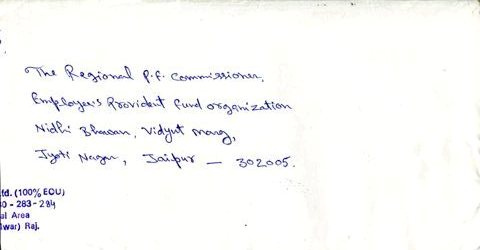 The Regional P.F. Commissioner,
Employee's Provident Fund organization
Nidhi Bhawan, Vidyut marg,
Jyoti Nagar, Jaipur — 302005.
td. (100% EOU)
0 - 283 - 284
al Area
lwar) Raj.